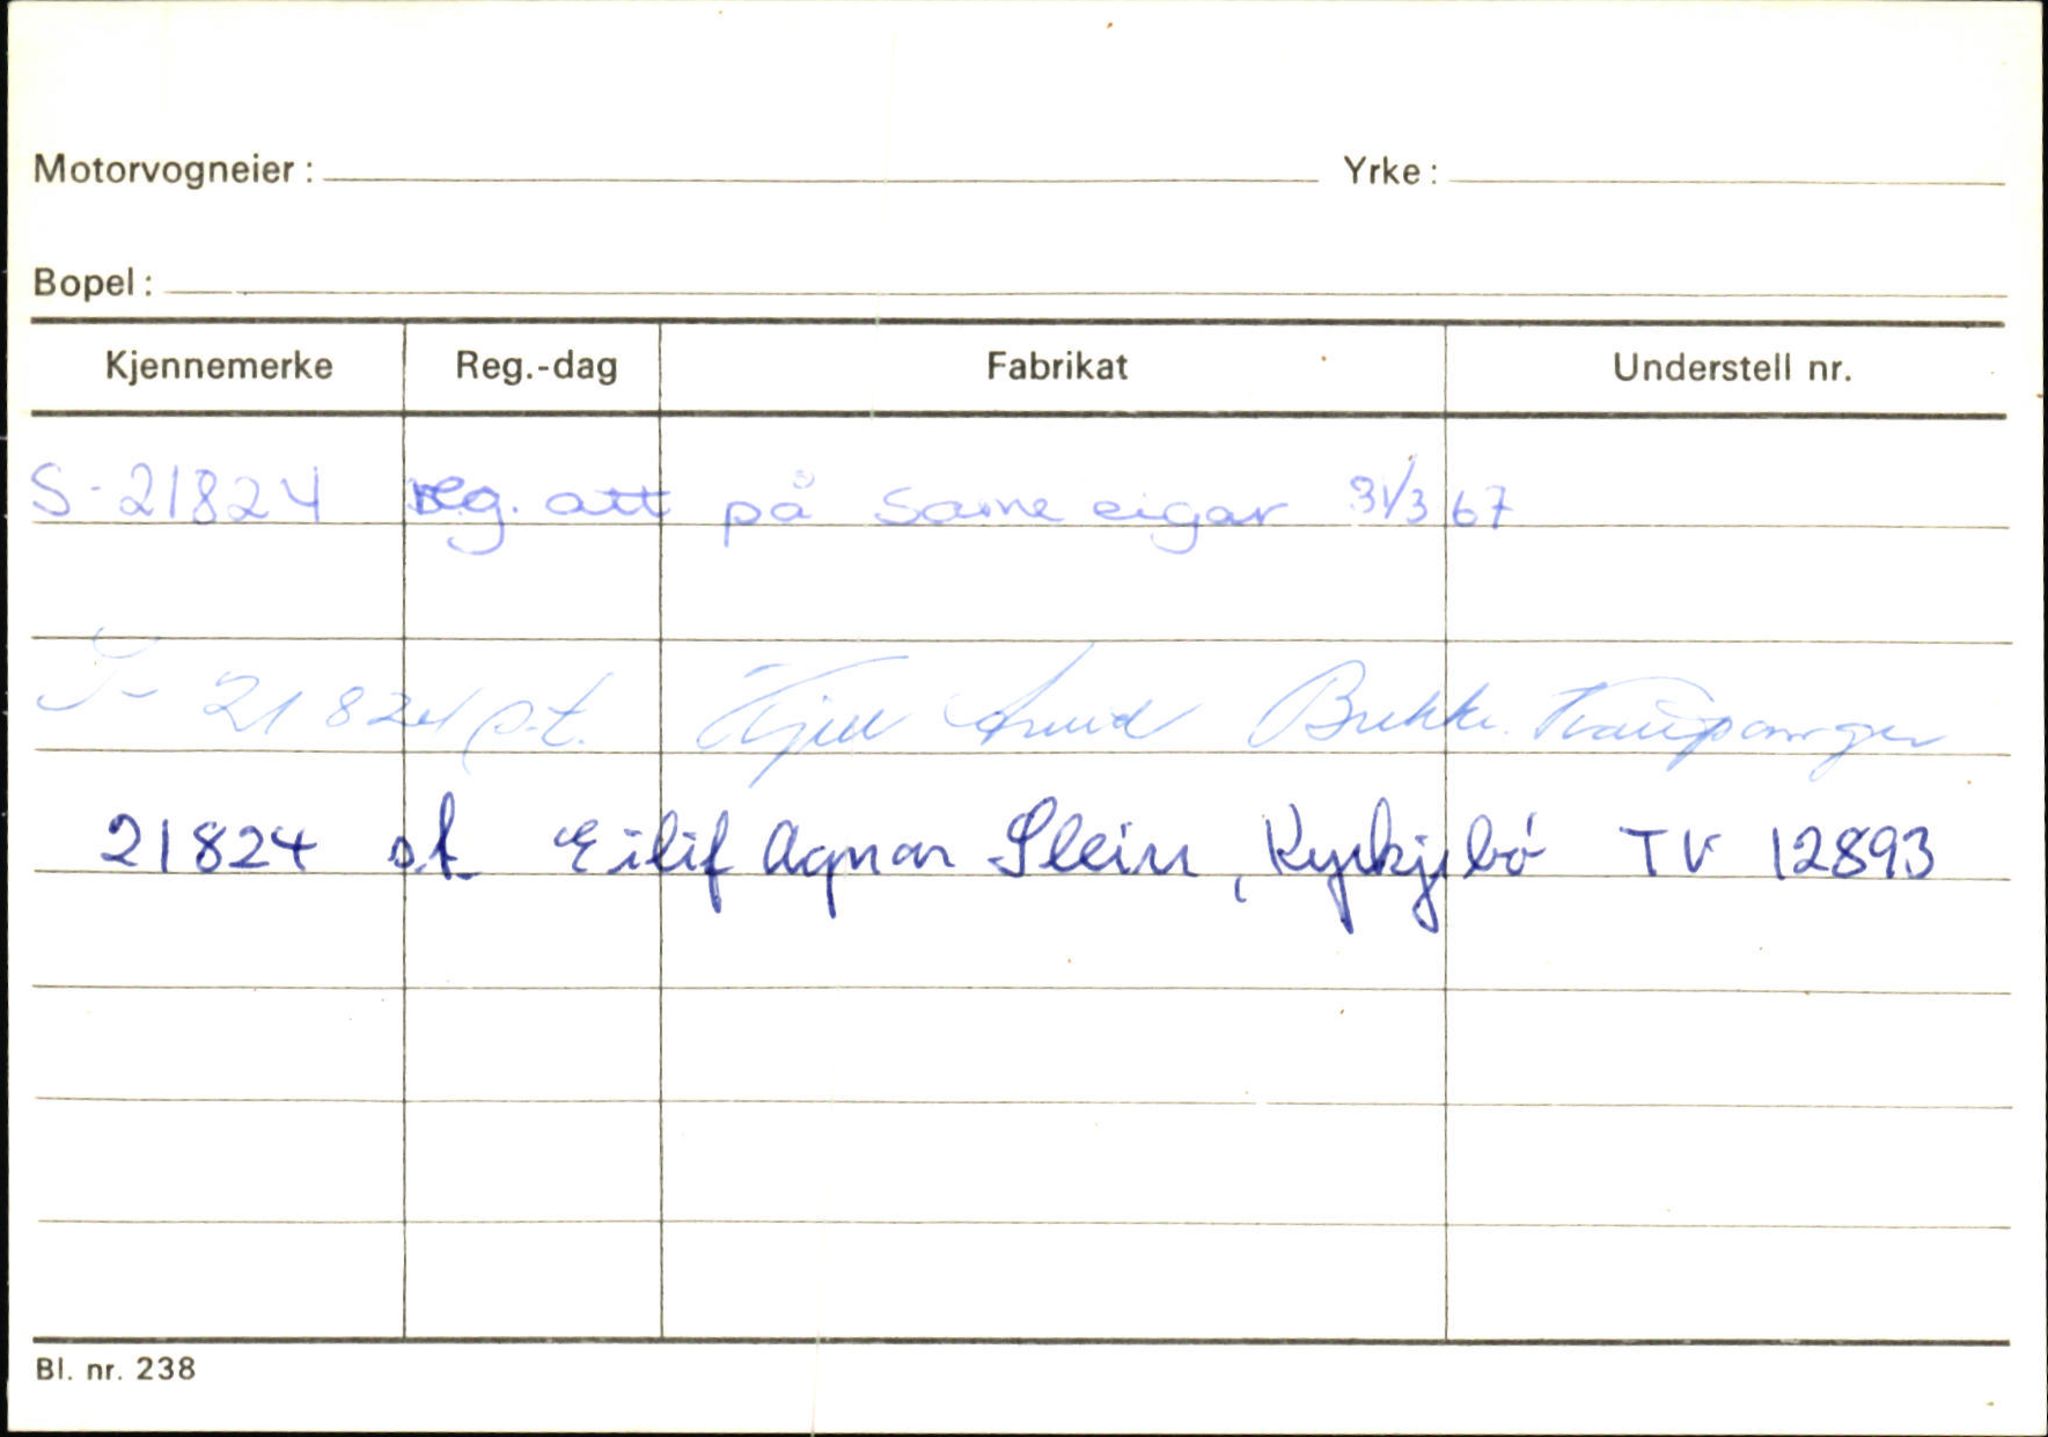 Motorvogneier: Yrke:
Bopel:
Kjennemerke Reg.-dag Fabrikat Understell nr.
S-21824 reg. att på same eigar 31/3 67
S-21824 p.t. Kjell Arvid Brekke. Kaupanger
21824 s.t. Eilif Agnar Slein, Kyrkjebø TV 12893
Bl. nr. 238